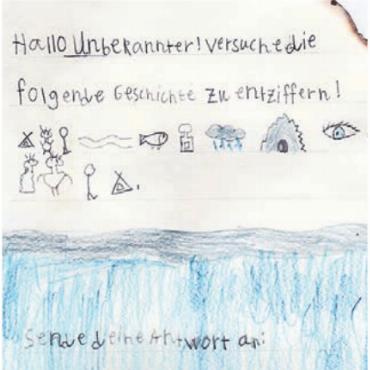 Hallo Unbekannter! Versuche die
folgende Geschichte zu entziffern!
Sende deine Antwort an: